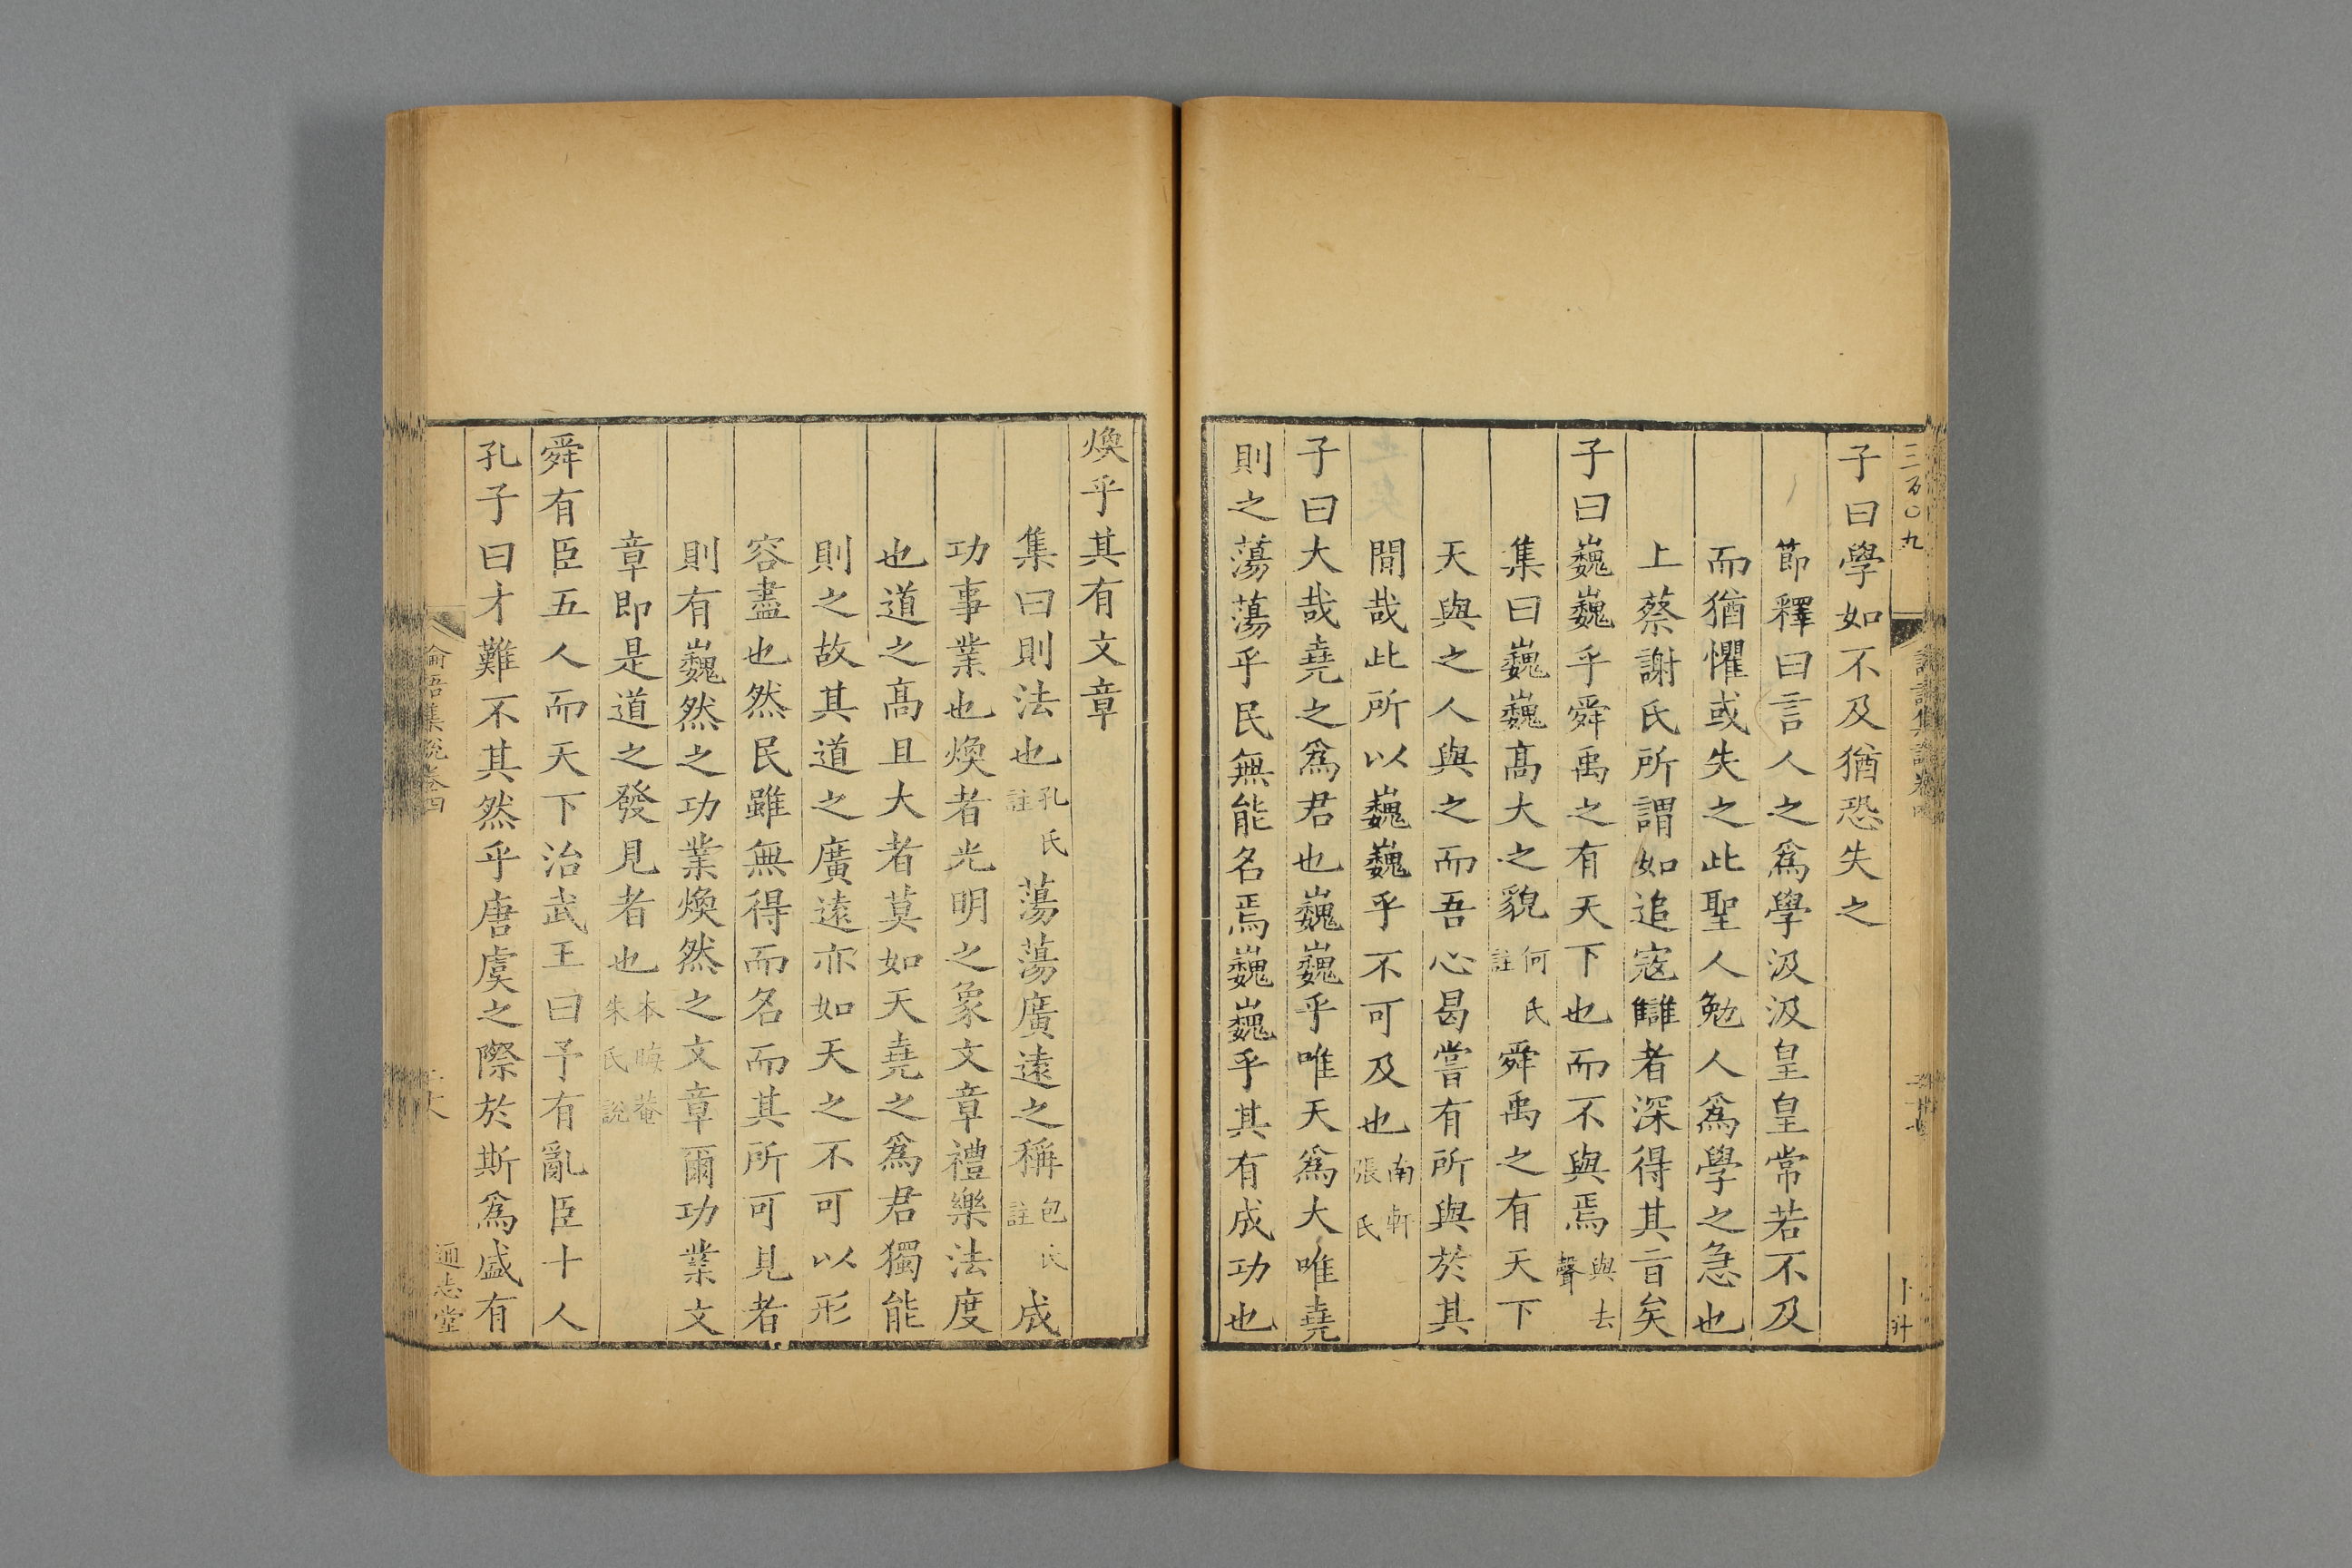 三百〇九
子曰學如不及猶恐失之
節釋曰言人之爲學汲汲皇皇常若不及
而猶懼或失之此聖人勉人爲學之急也
上蔡謝氏所謂如追寇讎者深得其旨矣
子曰巍巍乎舜禹之有天下也而不與焉與去聲
集曰巍巍高大之貌何氏註舜禹之有天下
天與之人與之而吾心曷嘗有所與於其
間哉此所以巍巍乎不可及也南軒張氏
子曰大哉堯之爲君也巍巍乎唯天爲大唯堯
則之蕩蕩乎民無能名焉巍巍乎其有成功也
煥乎其有文章
集曰則法也孔氏註蕩蕩廣遠之稱包氏註成
功事業也煥者光明之象文章禮樂法度
也道之髙且大者莫如天堯之爲君獨能
則之故其道之廣遠亦如天之不可以形
容盡也然民雖無得而名而其所可見者
則有巍然之功業煥然之文章爾功業文
章即是道之發見者也本晦菴朱氏說
舜有臣五人而天下治武王曰予有亂臣十人
孔子曰才難不其然乎唐虞之際於斯爲盛有
論語集說卷四
通志堂